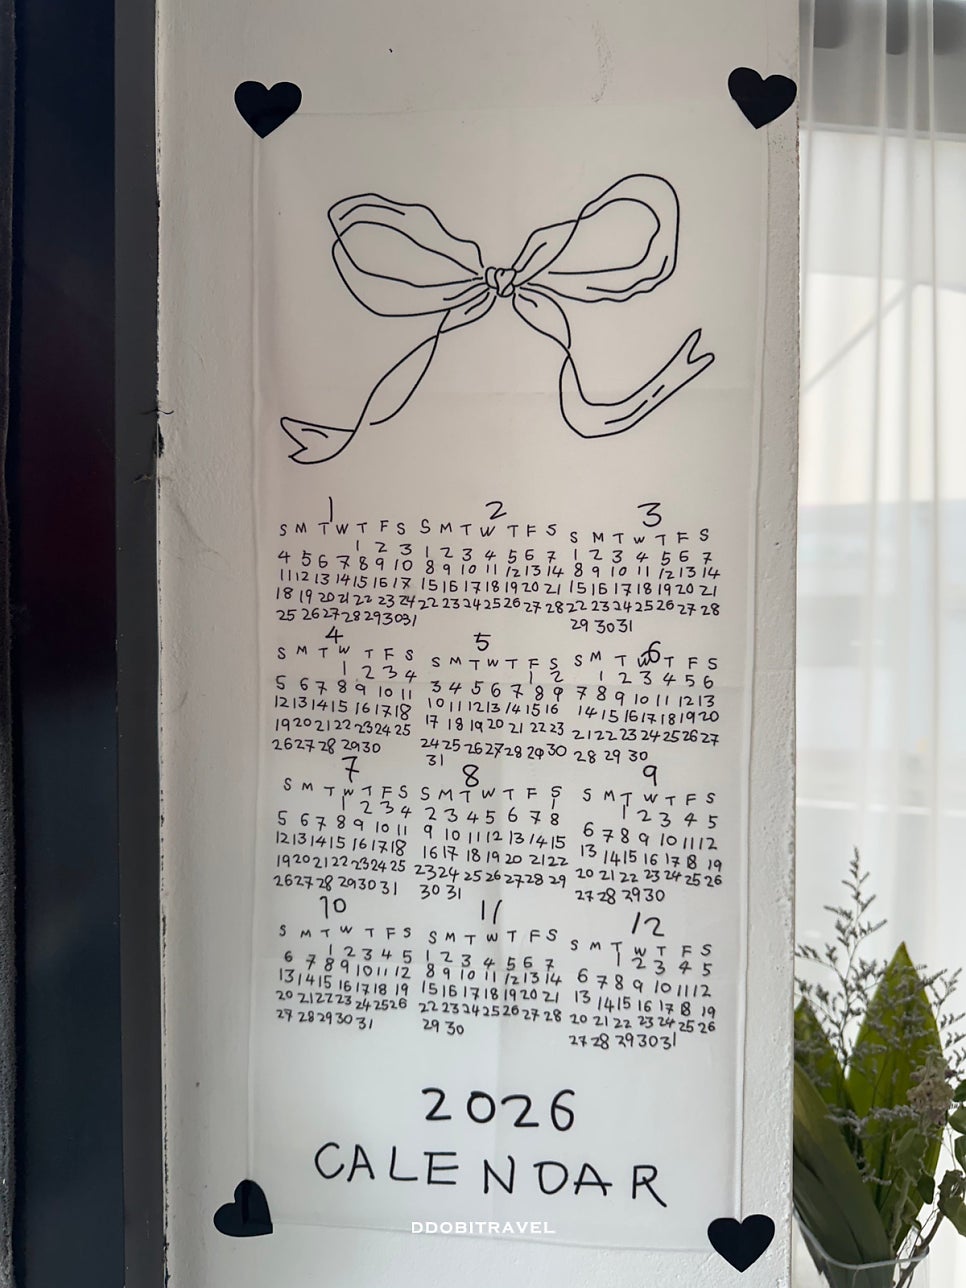 1
S M T W T F S
1 2 3
4 5 6 7 8 9 10
11 12 13 14 15 16 17
18 19 20 21 22 23 24
25 26 27 28 29 30 31
2
S M T W T F S
1 2 3 4 5 6 7
8 9 10 11 12 13 14
15 16 17 18 19 20 21
22 23 24 25 26 27 28
3
S M T W T F S
1 2 3 4 5 6 7
8 9 10 11 12 13 14
15 16 17 18 19 20 21
22 23 24 25 26 27 28
29 30 31
4
S M T W T F S
1 2 3 4
5 6 7 8 9 10 11
12 13 14 15 16 17 18
19 20 21 22 23 24 25
26 27 28 29 30
5
S M T W T F S
1 2
3 4 5 6 7 8 9
10 11 12 13 14 15 16
17 18 19 20 21 22 23
24 25 26 27 28 29 30
31
6
S M T W T F S
1 2 3 4 5 6
7 8 9 10 11 12 13
14 15 16 17 18 19 20
21 22 23 24 25 26 27
28 29 30
7
S M T W T F S
1 2 3 4
5 6 7 8 9 10 11
12 13 14 15 16 17 18
19 20 21 22 23 24 25
26 27 28 29 30 31
8
S M T W T F S
1
2 3 4 5 6 7 8
9 10 11 12 13 14 15
16 17 18 19 20 21 22
23 24 25 26 27 28 29
30 31
9
S M T W T F S
1 2 3 4 5
6 7 8 9 10 11 12
13 14 15 16 17 18 19
20 21 22 23 24 25 26
27 28 29 30
10
S M T W T F S
1 2 3 4 5
6 7 8 9 10 11 12
13 14 15 16 17 18 19
20 21 22 23 24 25 26
27 28 29 30 31
11
S M T W T F S
1 2 3 4 5 6 7
8 9 10 11 12 13 14
15 16 17 18 19 20 21
22 23 24 25 26 27 28
29 30
12
S M T W T F S
1 2 3 4 5
6 7 8 9 10 11 12
13 14 15 16 17 18 19
20 21 22 23 24 25 26
27 28 29 30 31
2026
CALENDAR
DDOBITRAVEL